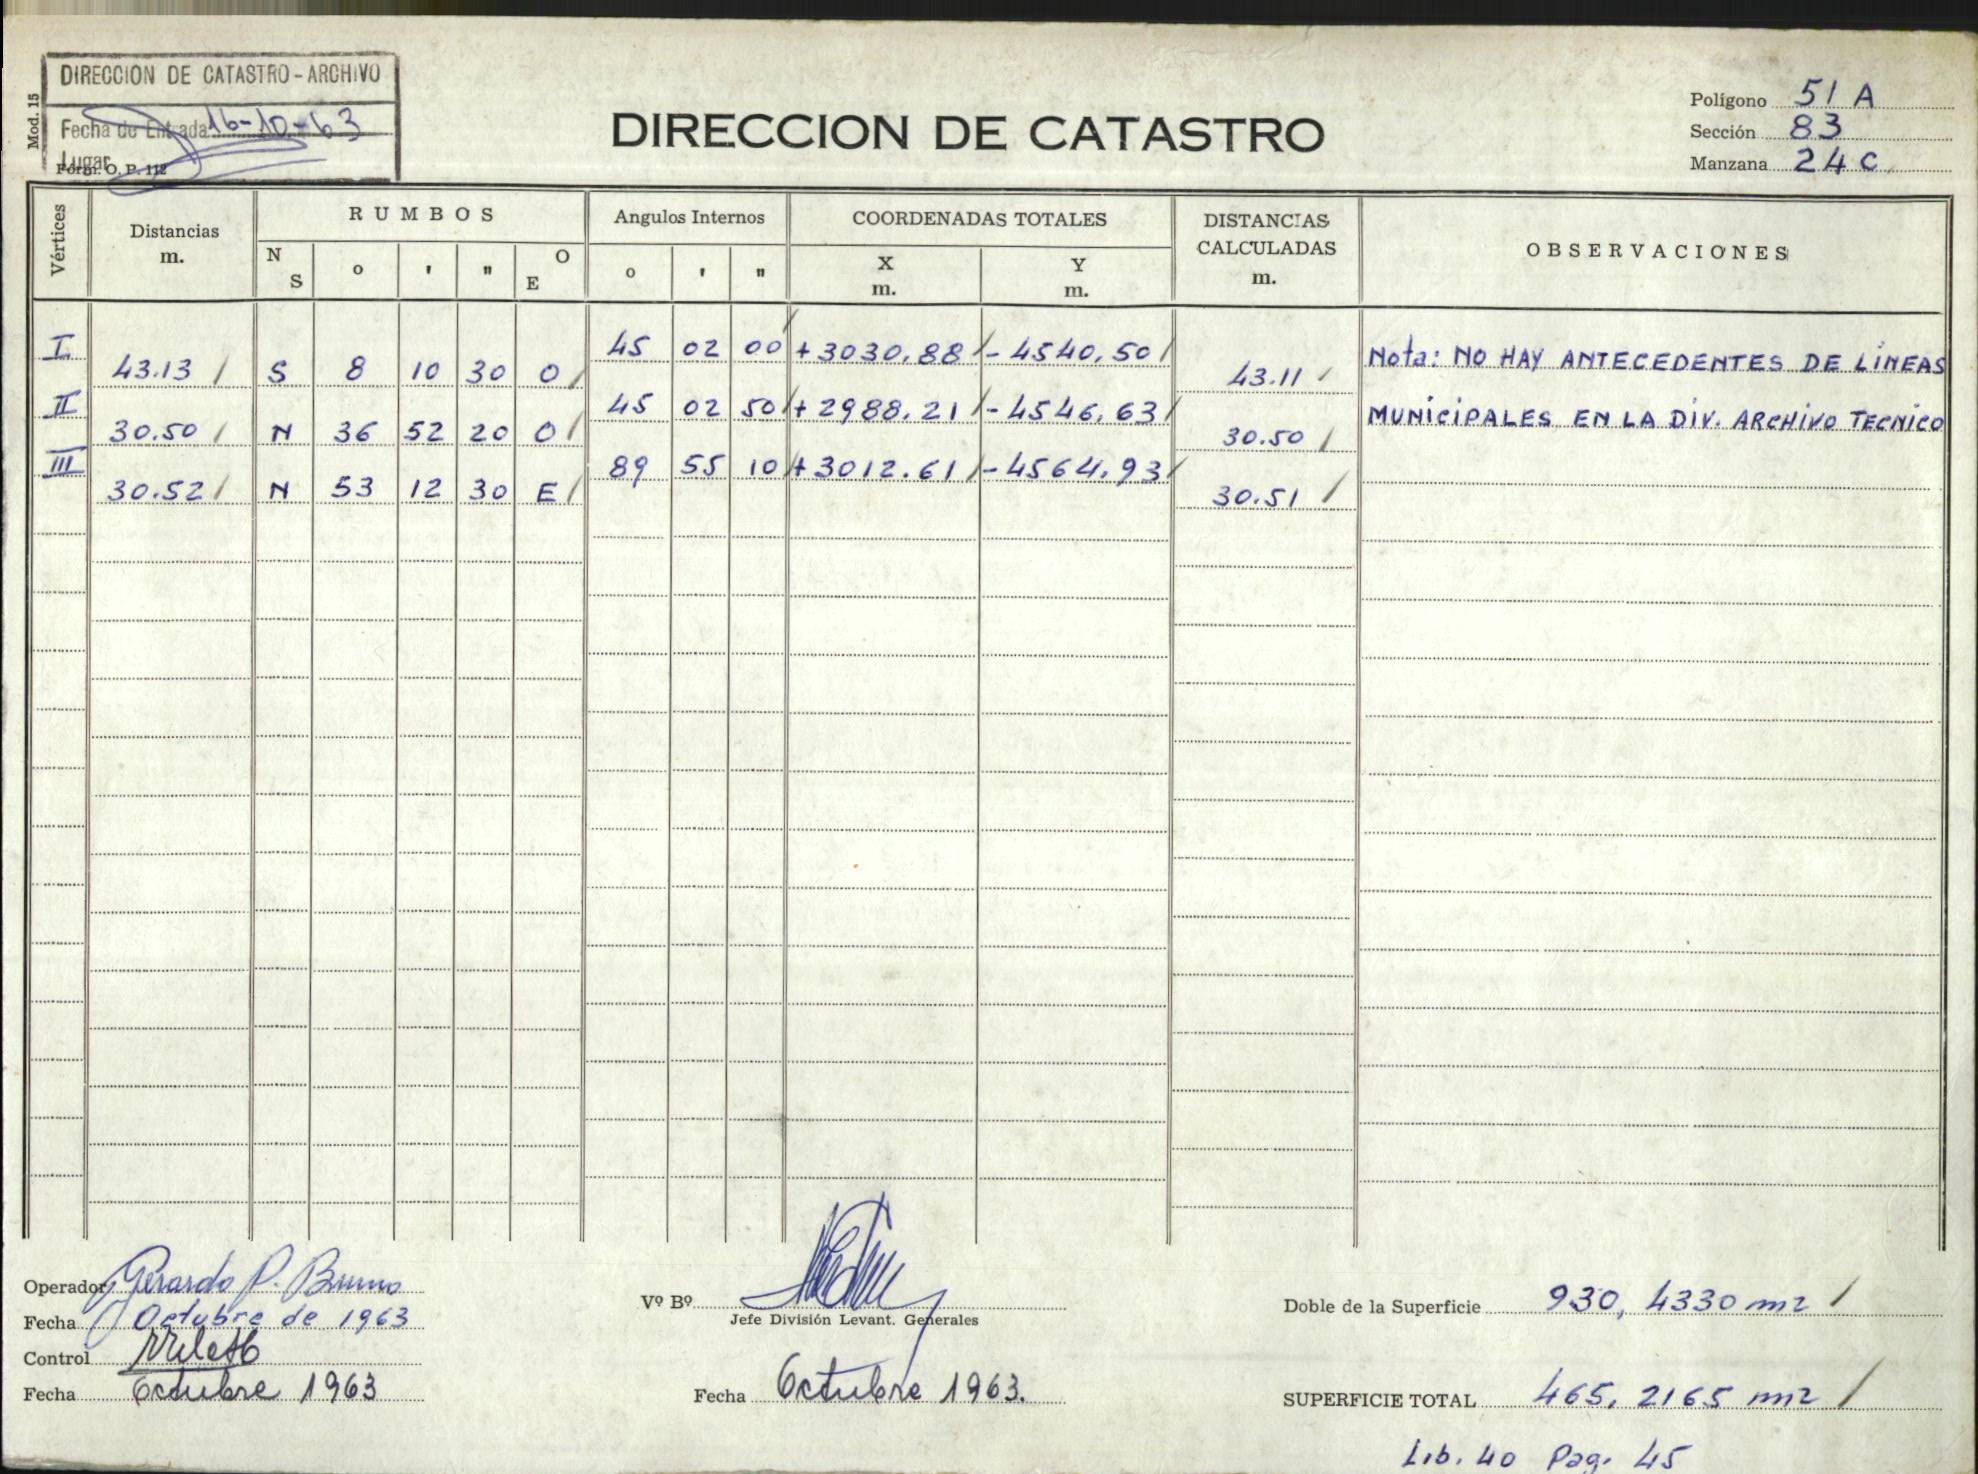 DIRECCION DE CATASTRO - ARCHIVO
Fecha de Entrada 16-10-63
Lugar
Mod. 15
Form. O. P. 112
DIRECCION DE CATASTRO
Polígono 51 A
Sección 83
Manzana 24 C
Vértices
Distancias
m.
RUMBOS
N S
o ' "
O E
Angulos Internos
o ' "
COORDENADAS TOTALES
X
m.
Y
m.
DISTANCIAS
CALCULADAS
m.
OBSERVACIONES
I 45 02 00 +3030,88 -4540,50
43.13 S 8 10 30 O 43.11
Nota: NO HAY ANTECEDENTES DE LÍNEAS
II 45 02 50 +2988,21 -4546,63
30.50 N 36 52 20 O 30.50
MUNICIPALES EN LA DIV. ARCHIVO TECNICO
III 89 55 10 +3012.61 -4564,93
30.52 N 53 12 30 E 30.51
Operador Gerardo P. Bruno
Fecha Octubre de 1963
Control
Fecha Octubre 1963
Vº Bº
Jefe División Levant. Generales
Fecha Octubre 1963.
Doble de la Superficie 930,4330 m2
SUPERFICIE TOTAL 465,2165 m2
Lib. 40 Pag. 45